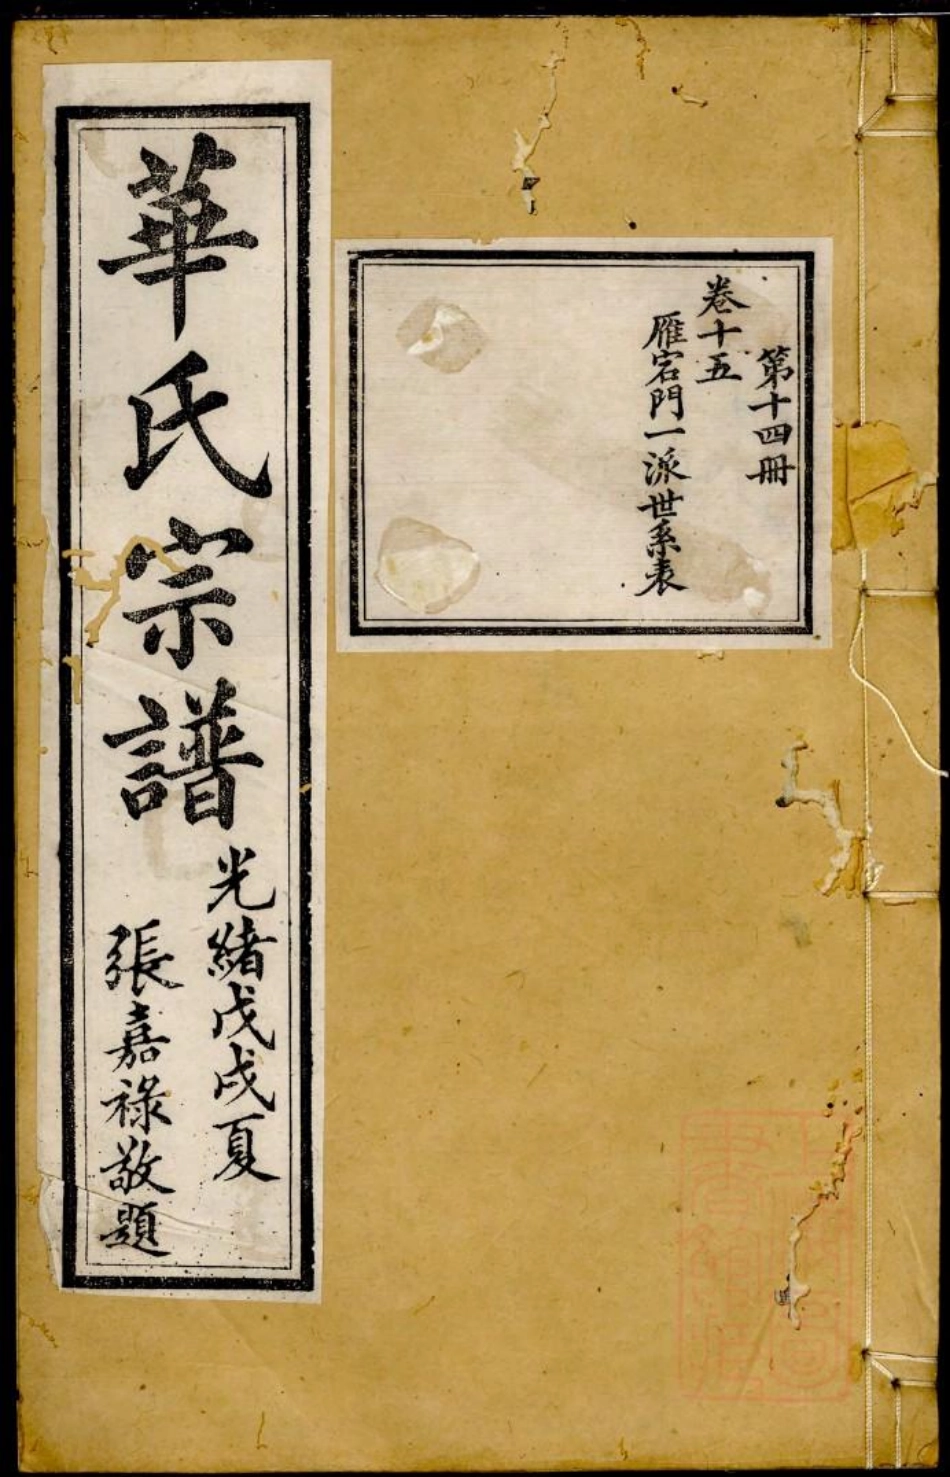 第十四冊
卷十五
雁宕門一派世系表
華氏宗譜
光緒戊戌夏
張嘉祿敬題